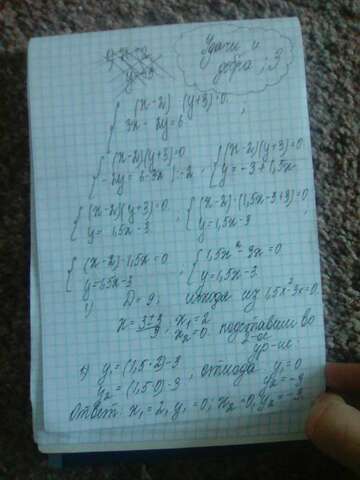 Удачи и
добра ;3
{ (x-2)(y+3)=0
3x-2y=6 ;
{ (x-2)(y+3)=0
-2y=6-3x |:-2 ; { (x-2)(y+3)=0
y=-3+1,5x
{ (x-2)(y+3)=0
y=1,5x-3 ; { (x-2)·(1,5x-3+3)=0
y=1,5x-3
{ (x-2)·1,5x=0
y=1,5x-3 { 1,5x²-3x=0
y=1,5x-3
1) D=9; исходя из 1,5x²-3x=0
x=3±3/3; x₁=2
x₂=0 подставим во
2-ое
ур-ие:
2) y₁=(1,5·2)-3
y₂=(1,5·0)-3 , отсюда y₁=0
y₂=-3
Ответ: x₁=2, y₁=0; x₂=0, y₂=-3